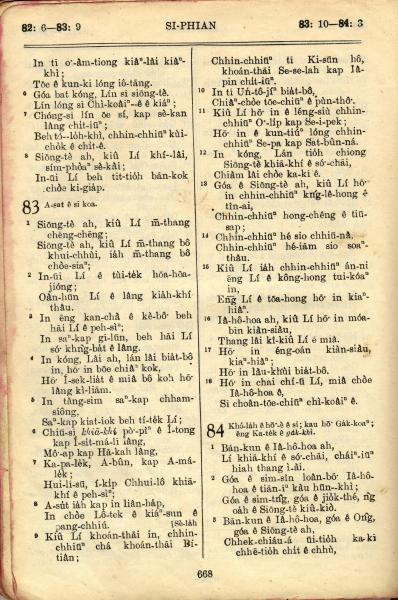 82: 6—83: 9
SI-PHIAN
83: 10—84: 3
In tī o͘-àm-tiong kiâⁿ-lâi kiâⁿ-
khì;
Tōe ê kun-ki lóng iô-tāng.
6 Góa bat kóng, Lín sī siōng-tè.
Lín lóng sī Chì-koâiⁿ-ê ê kiáⁿ;
7 Chóng-sī lín òe sí, kap sè-kan
lâng chi̍t-iūⁿ;
Beh tó—lo̍h-khì, chhin-chhiūⁿ kùi-
cho̍k ê chi̍t-ê.
8 Siōng-tè ah, kiû Lí khí-lâi,
sím-phòaⁿ sè-kài;
In-ūi Lí beh tit-tio̍h bān-kok
chòe ki-gia̍p.
83 A-sat ê si koa.
1 Siōng-tè ah, kiû Lí m̄-thang
chēng-chēng;
Siōng-tè ah, kiû Lí m̄-thang bô
khui-chhùi, iā m̄-thang bô
chòe-siaⁿ;
2 In-ūi Lí ê tùi-te̍k hōa-hôa-
jióng;
Oàn-hūn Lí ê lâng kia̍h-khí
thâu.
3 In èng kan-chà ê kè-bô͘ beh
hāi Lí ê peh-sìⁿ;
In saⁿ-kap gī-lūn, beh hāi Lí
só͘ khǹg-ba̍t ê lâng.
4 In kóng, Lâi ah, lán lâi bia̍t-bô
in, hō͘ in bōe chiâⁿ kok,
Hō͘ Í-sek-lia̍t ê miâ bô koh hō͘
lâng kì-liām.
5 In tâng-sim saⁿ-kap chham-
siông,
Saⁿ-kap kiat-iok beh tí-te̍k Lí;
6 Chiū-sī khiā-khí pò͘-pîⁿ ê Í-tong
kap Í-si̍t-má-lī lâng,
Mô͘-ap kap Hā-kah lâng,
7 Ka-pa-le̍k, A-bûn, kap A-má-
le̍k;
Hui-lī-sū, í-ki̍p Chhui-lô khiā-
khí ê peh-sìⁿ;
8 A-su̍t iā kap in liân-ha̍p,
In chòe Lô-tek ê kiáⁿ-sun ê
pang-chhiú.
[Sè-lah
9 Kiû Lí khoán-thāi in, chhin-
chhiūⁿ chá khoán-thāi Bí-
tiân;
Chhin-chhiūⁿ tī Ki-sūn hô,
khoán-thāi Se-se-lah kap Iâ-
pin chi̍t-iūⁿ.
10 In tī Ún-tô-jíⁿ bia̍t-bô,
Chiâⁿ-chòe tōe-chiūⁿ ê pùn-thô͘.
11 Kiû Lí hō͘ in ê léng-siù chhin-
chhiūⁿ O͘-li̍p kap Se-í-pek;
Hō͘ in ê kun-tiúⁿ lóng chhin-
chhiūⁿ Se-pa kap Sat-bûn-ná.
12 In kóng, Lán tio̍h chiong
Siōng-tè khiā-khí ê só͘-chāi,
Chiàm lâi chòe ka-kī ê.
13 Góa ê Siōng-tè ah, kiû Lí hō͘
in chhin-chhiūⁿ kńg-lê-hong ê
tîn-ai,
Chhin-chhiūⁿ hong-chêng ê tiū-
sap;
14 Chhin-chhiūⁿ hé sio chhiū-nâ,
Chhin-chhiūⁿ hé-iām sio soaⁿ-
thâu.
15 Kiû Lí iā chhin-chhiūⁿ án-ni
ēng Lí ê kông-hong tui-kóaⁿ
in,
Ēng Lí ê tōa-hong hō͘ in kiaⁿ-
hiâⁿ.
16 Iâ-hô-hoa ah, kiû Lí hō͘ in móa-
bīn kiàn-siàu,
Thang lâi kî-kiû Lí ê miâ.
17 Hō͘ in éng-oán kiàn-siàu,
kiaⁿ-hiâⁿ;
Hō͘ in làu-khùi bia̍t-bô,
18 Hō͘ in chai chí-ū Lí, miâ chòe
Iâ-hô-hoa ê,
Sī choân-tōe-chiūⁿ chì-koâiⁿ ê.
84 Khó-la̍h ê hō͘-è ê si; kau hō͘ Ga̍k-koaⁿ;
ēng Ka-te̍k ê ga̍k-khì.
1 Bān-kun ê Iâ-hô-hoa ah,
Lí khiā-khí ê só͘-chāi, cháiⁿ-iūⁿ
hiah thang ì-ài.
2 Góa ê sim-sîn loân-bō͘ Iâ-hô-
hoa ê tiān-iⁿ kàu hūn—khì;
Góa ê sim-tn̂g, góa ê jio̍k-thé, ǹg
oa̍h ê Siōng-tè kiû-kiò.
3 Bān-kun ê Iâ-hô-hoa, góa ê Ông,
góa ê Siōng-tè ah,
Chhek-chiáu-á ūi-tio̍h ka-kī
chhē-tio̍h chi̍t ê chhù,
668